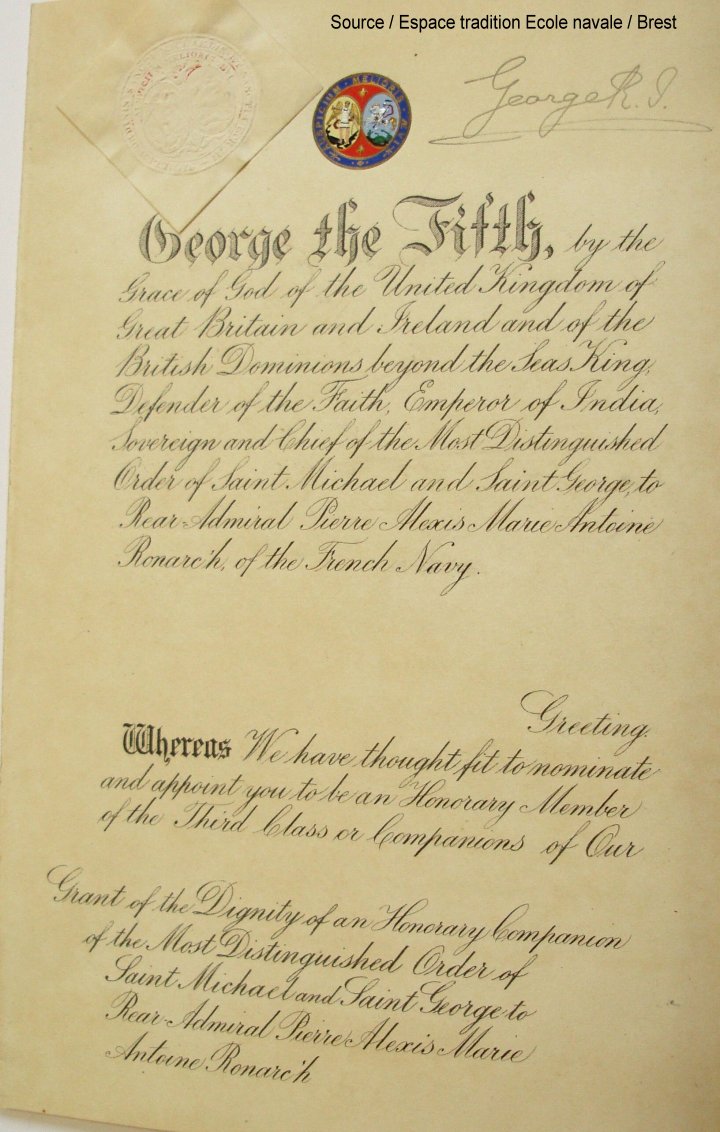 Source / Espace tradition Ecole navale / Brest
AUSPICIUM · MELIORIS · ÆVI
George R. I.
George the Fifth, by the
Grace of God of the United Kingdom of
Great Britain and Ireland and of the
British Dominions beyond the Seas King,
Defender of the Faith, Emperor of India,
Sovereign and Chief of the Most Distinguished
Order of Saint Michael and Saint George, to
Rear-Admiral Pierre Alexis Marie Antoine
Ronarc'h, of the French Navy.
Greeting.
Whereas We have thought fit to nominate
and appoint you to be an Honorary Member
of the Third Class or Companions of Our
Grant of the Dignity of an Honorary Companion
of the Most Distinguished Order of
Saint Michael and Saint George to
Rear-Admiral Pierre Alexis Marie
Antoine Ronarc'h